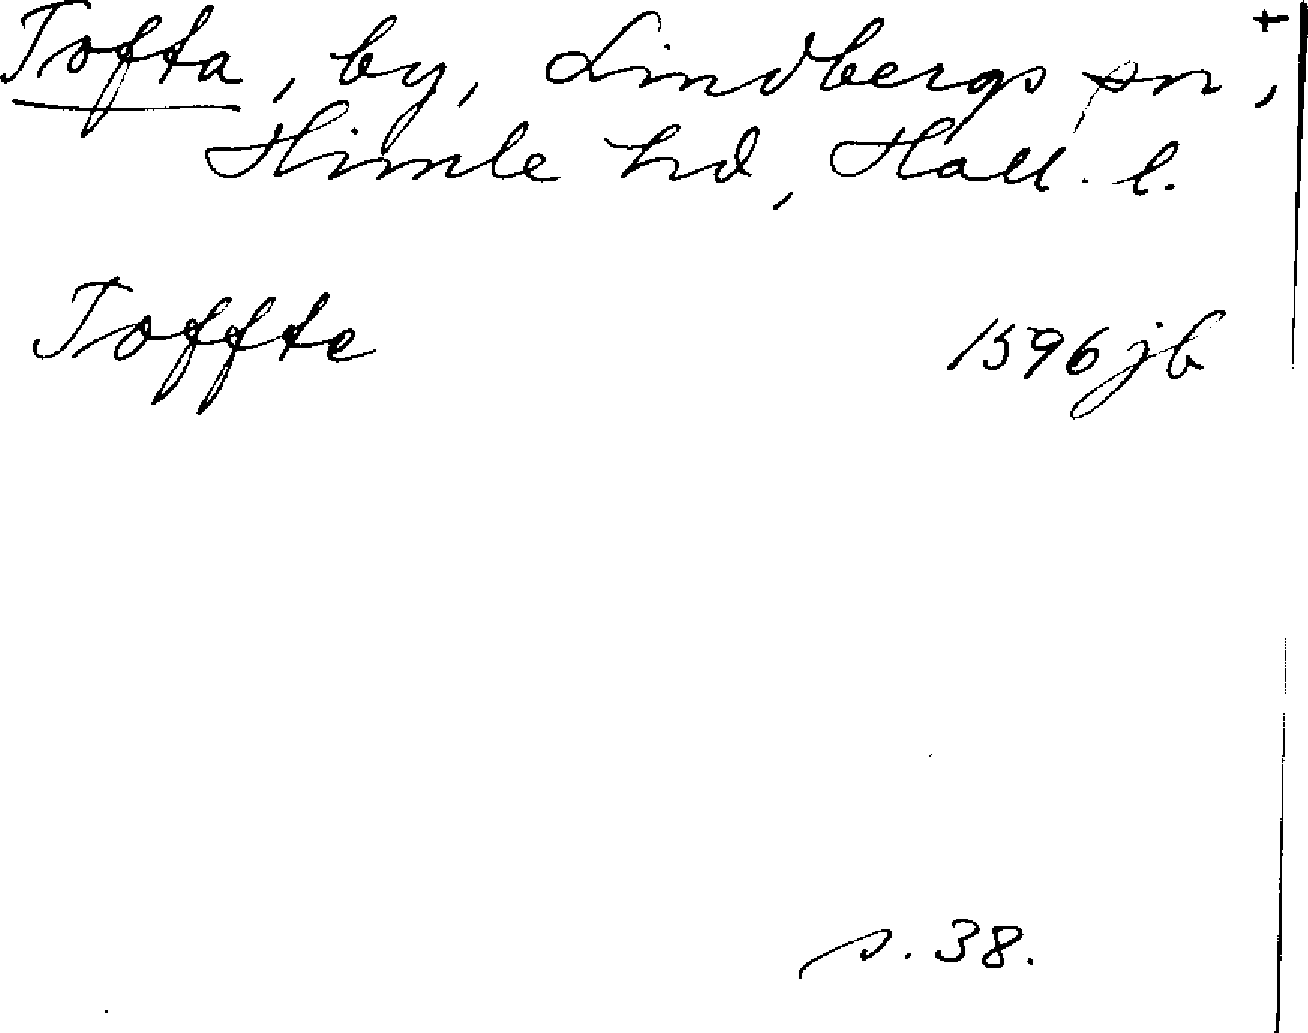 Tofta, by, Lindbergs sn, +
Himle hd, Hall. l.
Toffte 1596 jb
s. 38.